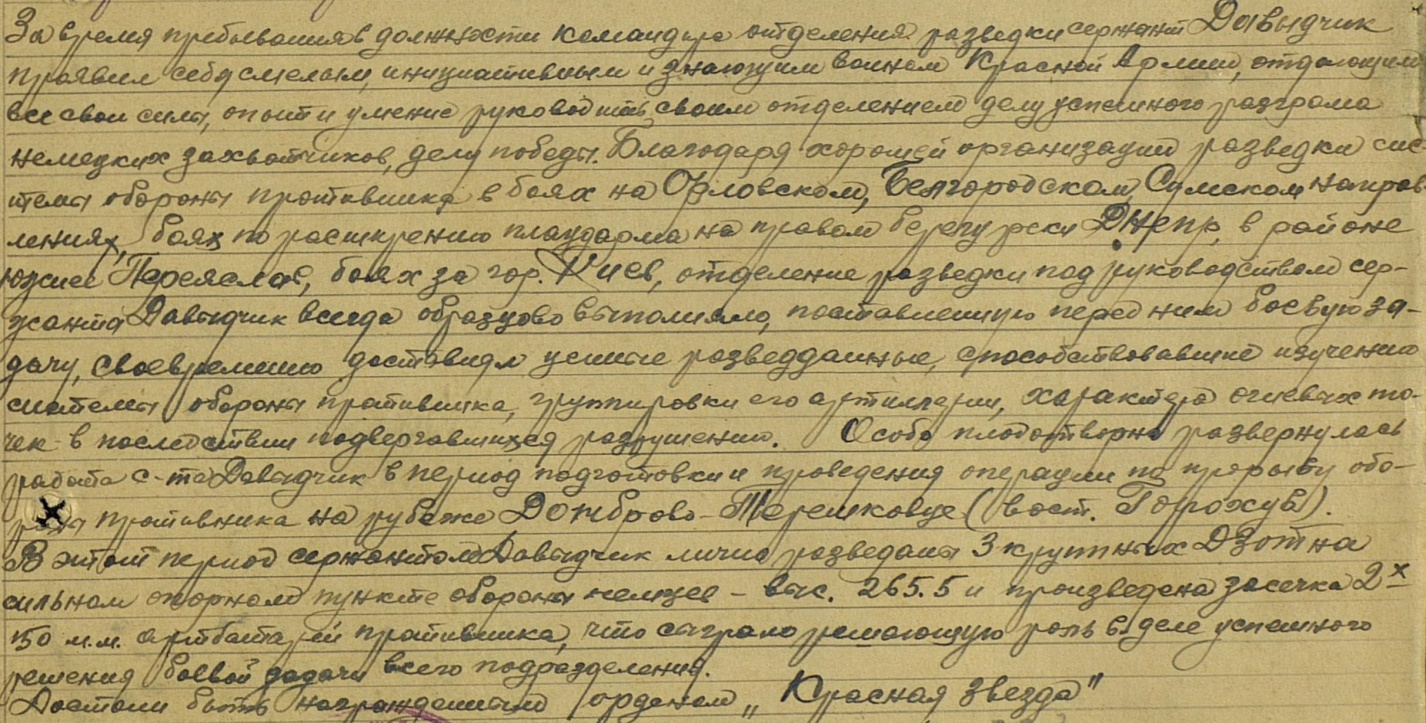 За время пребывания в должности командира отделения разведки сержант Давыдчик
проявил себя смелым, инициативным и знающим воином Красной Армии, отдающим
все свои силы, опыт и умение руководить своим отделением делу успешного разгрома
немецких захватчиков, делу победы. Благодаря хорошей организации разведки сис-
темы обороны противника в боях на Орловском, Белгородском, Сумском направ-
лениях, боях по расширению плацдарма на правом берегу реки Днепр, в районе
южнее Переяслав, боях за гор. Киев, отделение разведки под руководством сер-
жанта Давыдчик всегда образцово выполняло, поставленную перед ним боевую за-
дачу, своевременно доставляя ценные разведданные, способствовавшие изучению
системы обороны противника, группировки его артиллерии, характера огневых то-
чек в последствии подвергавшихся разрушению. Особо плодотворно развернулась
работа с-та Давыдчик в период подготовки и проведения операции по прорыву обо-
роны противника на рубеже Домброво-Терешковце (вост. Горохув).
В этот период сержантом Давыдчик лично разведаны 3 крупных ДЗОТ на
сильном опорном пункте обороны немцев - выс. 265.5 и произведена засечка 2х
150 м.м. артбатарей противника, что сыграло решающую роль в деле успешного
решения боевой задачи всего подразделения.
Достоин быть награжденным орденом „Красная Звезда"